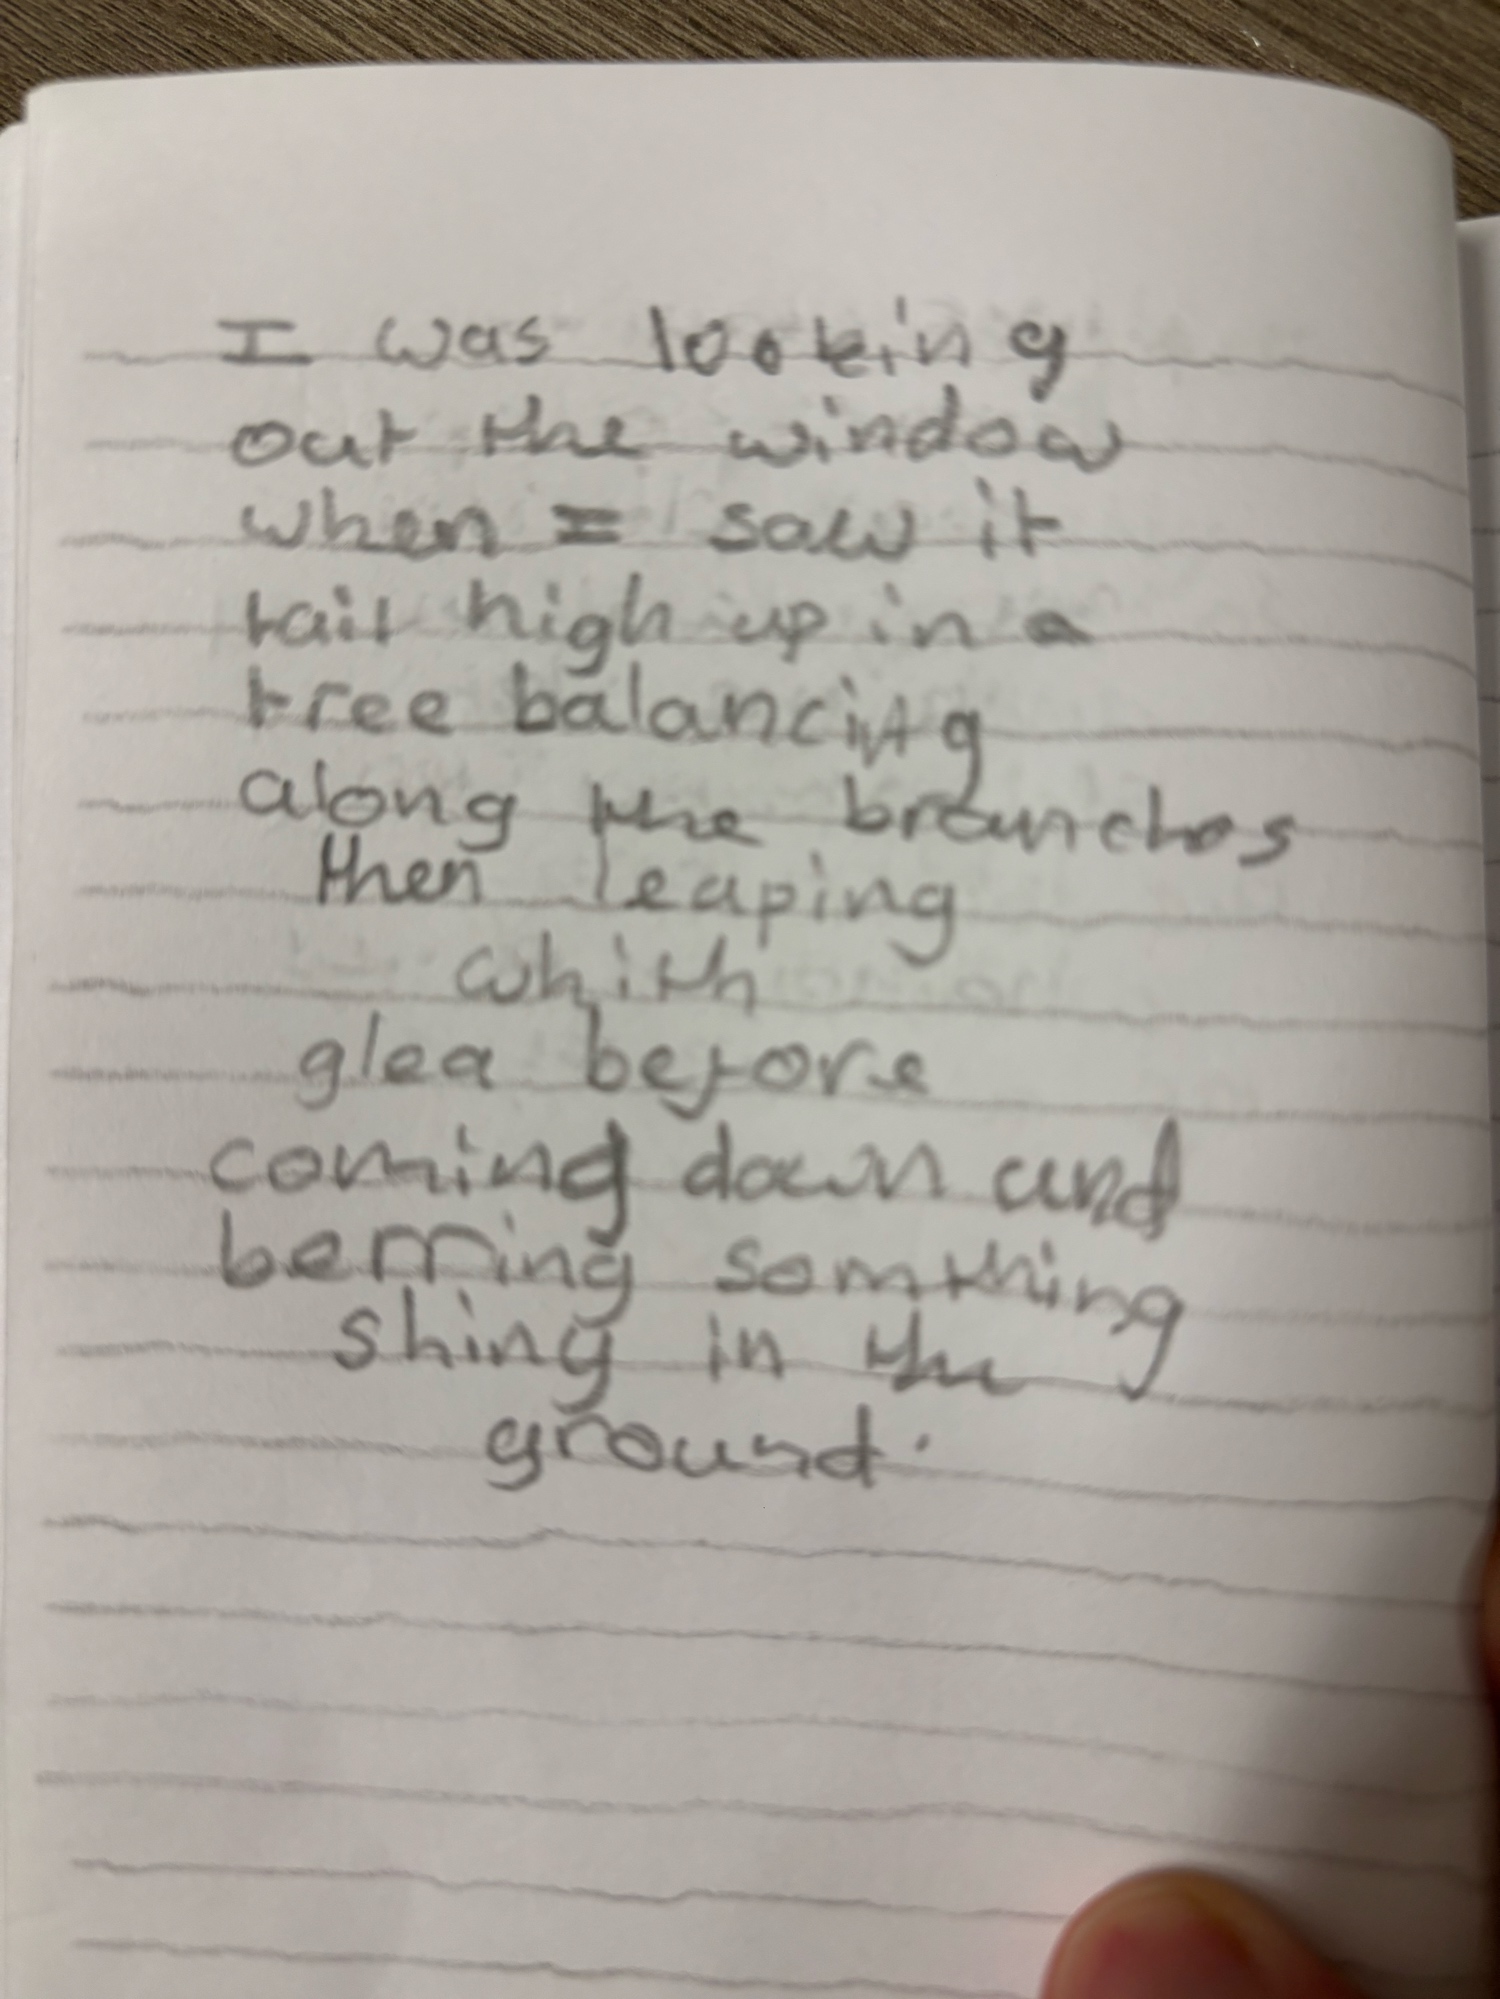 I was looking
out the window
when I saw it
tail high up in a
tree balancing
along the branches
then leaping
whith
glea before
coming down and
berring somthing
shiny in the
ground.